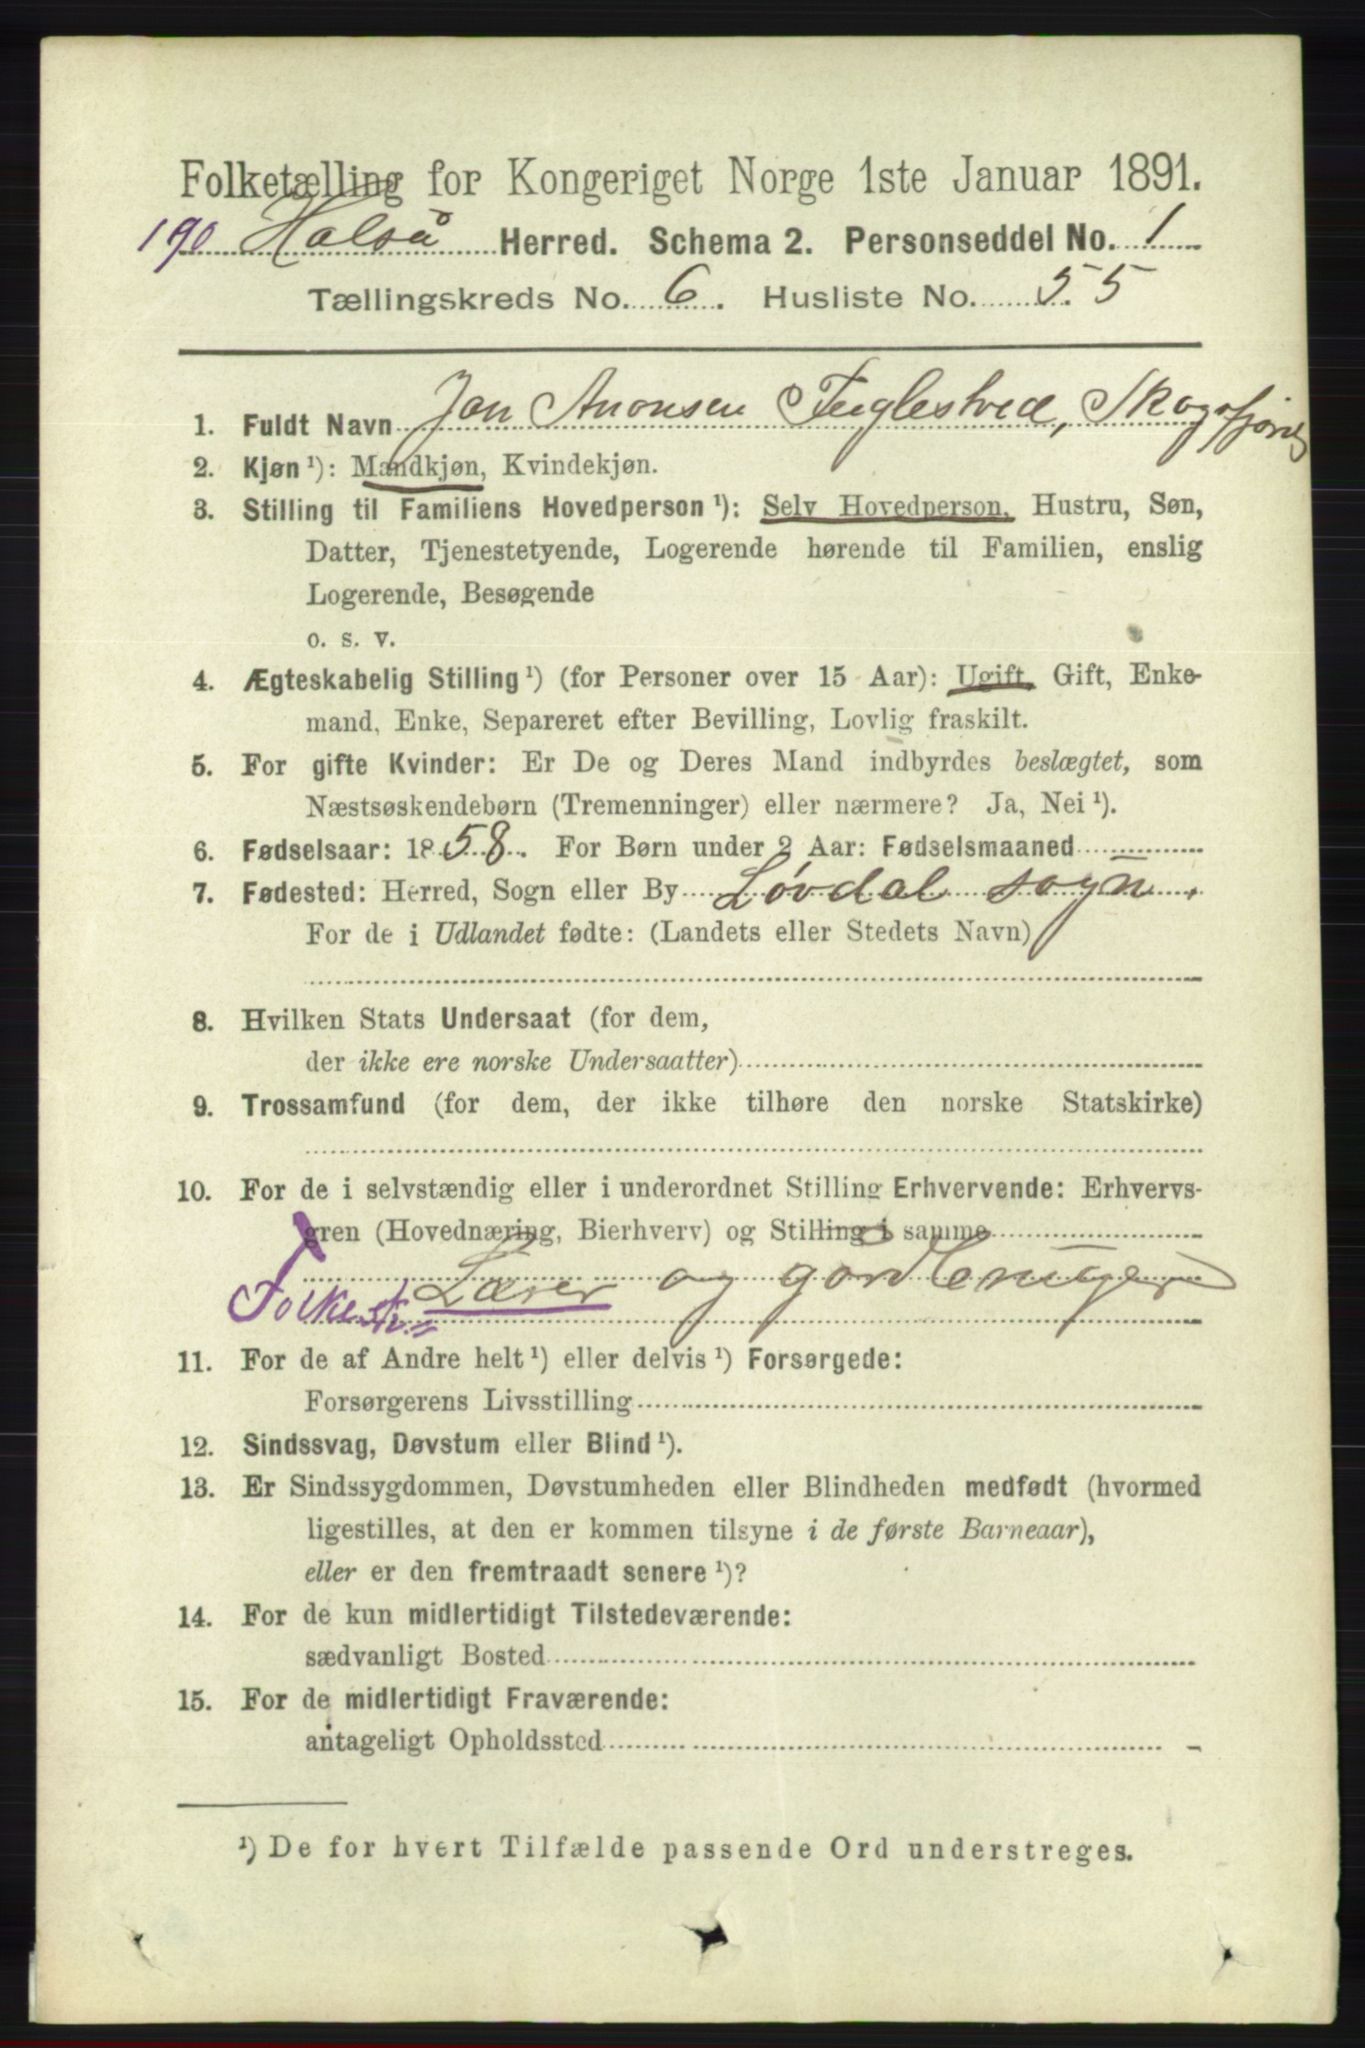 Folketælling for Kongeriget Norge 1ste Januar 1891.
190 Halså Herred. Schema 2. Personseddel No. 1
Tællingskreds No. 6. Husliste No. 55
1. Fuldt Navn Jon Anonsen Fuglestved, Skogsfjord
2. Kjøn ¹): Mandkjøn, Kvindekjøn.
3. Stilling til Familiens Hovedperson ¹): Selv Hovedperson, Hustru, Søn,
Datter, Tjenestetyende, Logerende hørende til Familien, enslig
Logerende, Besøgende
o. s. v.
4. Ægteskabelig Stilling ¹) (for Personer over 15 Aar): Ugift, Gift, Enke-
mand, Enke, Separeret efter Bevilling, Lovlig fraskilt.
5. For gifte Kvinder: Er De og Deres Mand indbyrdes beslægtet, som
Næstsøskendebørn (Tremenninger) eller nærmere? Ja, Nei ¹).
6. Fødselsaar: 1858. For Børn under 2 Aar: Fødselsmaaned
7. Fødested: Herred, Sogn eller By Løvdal sogn.
For de i Udlandet fødte: (Landets eller Stedets Navn)
8. Hvilken Stats Undersaat (for dem,
der ikke ere norske Undersaatter)
9. Trossamfund (for dem, der ikke tilhøre den norske Statskirke)
10. For de i selvstændig eller i underordnet Stilling Erhvervende: Erhvervs-
gren (Hovednæring, Bierhverv) og Stilling i samme
Folkesk. Lærer og gårdbruger
11. For de af Andre helt ¹) eller delvis ¹) Forsørgede:
Forsørgerens Livsstilling
12. Sindssvag, Døvstum eller Blind ¹).
13. Er Sindssygdommen, Døvstumheden eller Blindheden medfødt (hvormed
ligestilles, at den er kommen tilsyne i de første Barneaar),
eller er den fremtraadt senere ¹)?
14. For de kun midlertidigt Tilstedeværende:
sædvanligt Bosted
15. For de midlertidigt Fraværende:
antageligt Opholdssted
¹) De for hvert Tilfælde passende Ord understreges.